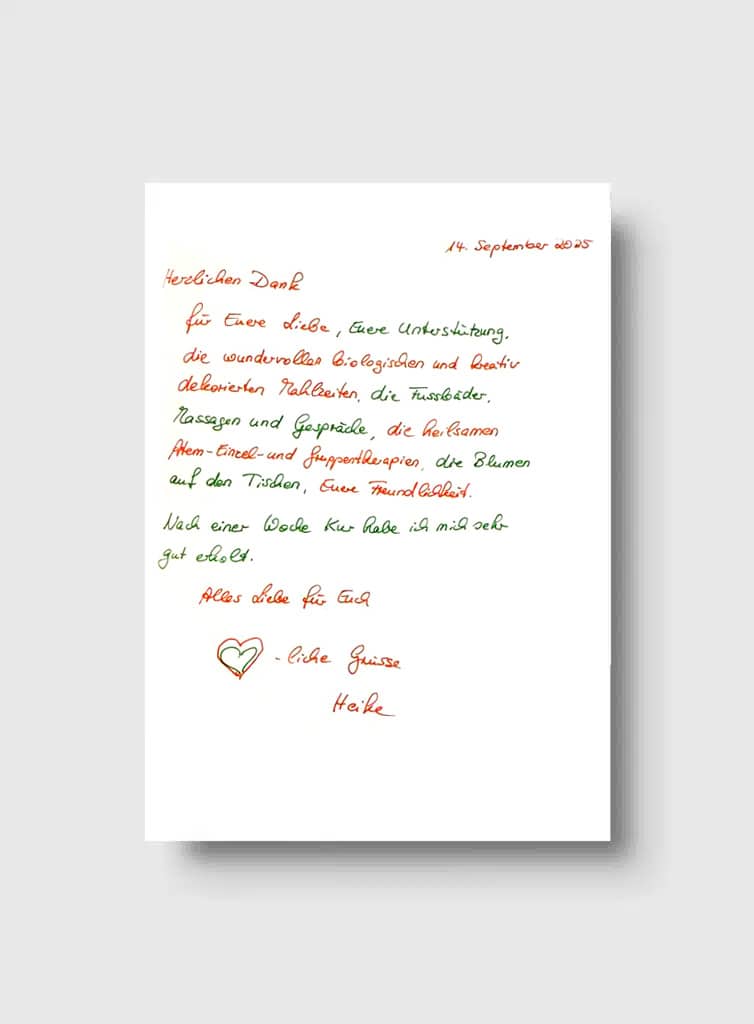 14. September 2025
Herzlichen Dank
für Euere Liebe, Euere Unterstützung,
die wundervollen biologischen und kreativ
dekorierten Mahlzeiten, die Fussbäder,
Massagen und Gespräche, die heilsamen
Atem-Einzel-und Gruppentherapien, die Blumen
auf den Tischen, Euere Freundlichkeit.
Nach einer Woche Kur habe ich mich sehr
gut erholt.
Alles Liebe für Euch
-liche Grüsse
Heike